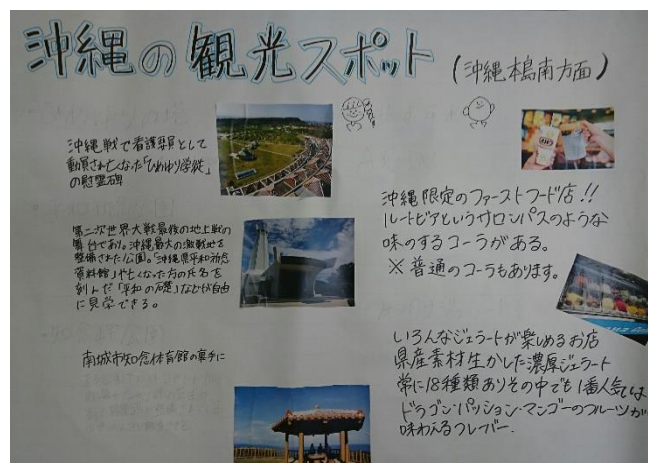 沖縄の観光スポット
(沖縄本島南方面)
沖縄戦で看護要員として
動員され亡くなった「ひめゆり学徒」
の慰霊碑
第二次世界大戦最後の地上戦の
舞台であり。沖縄最大の激戦地を
整備された公園。「沖縄県平和祈念
資料館」や亡くなった方の氏名を
刻んだ「平和の礎」などが自由
に見学できる。
南城市知念体育館の裏手に
沖縄限定のファーストフード店!!
ルートビアというサロンパスのような
味のするコーラがある。
※普通のコーラもあります。
いろんなジェラートが楽しめるお店
県産素材生かした濃厚ジェラート
常に18種類ありその中でも1番人気は
ドラゴン・パッション・マンゴーのフルーツが
味わえるフレーバー.